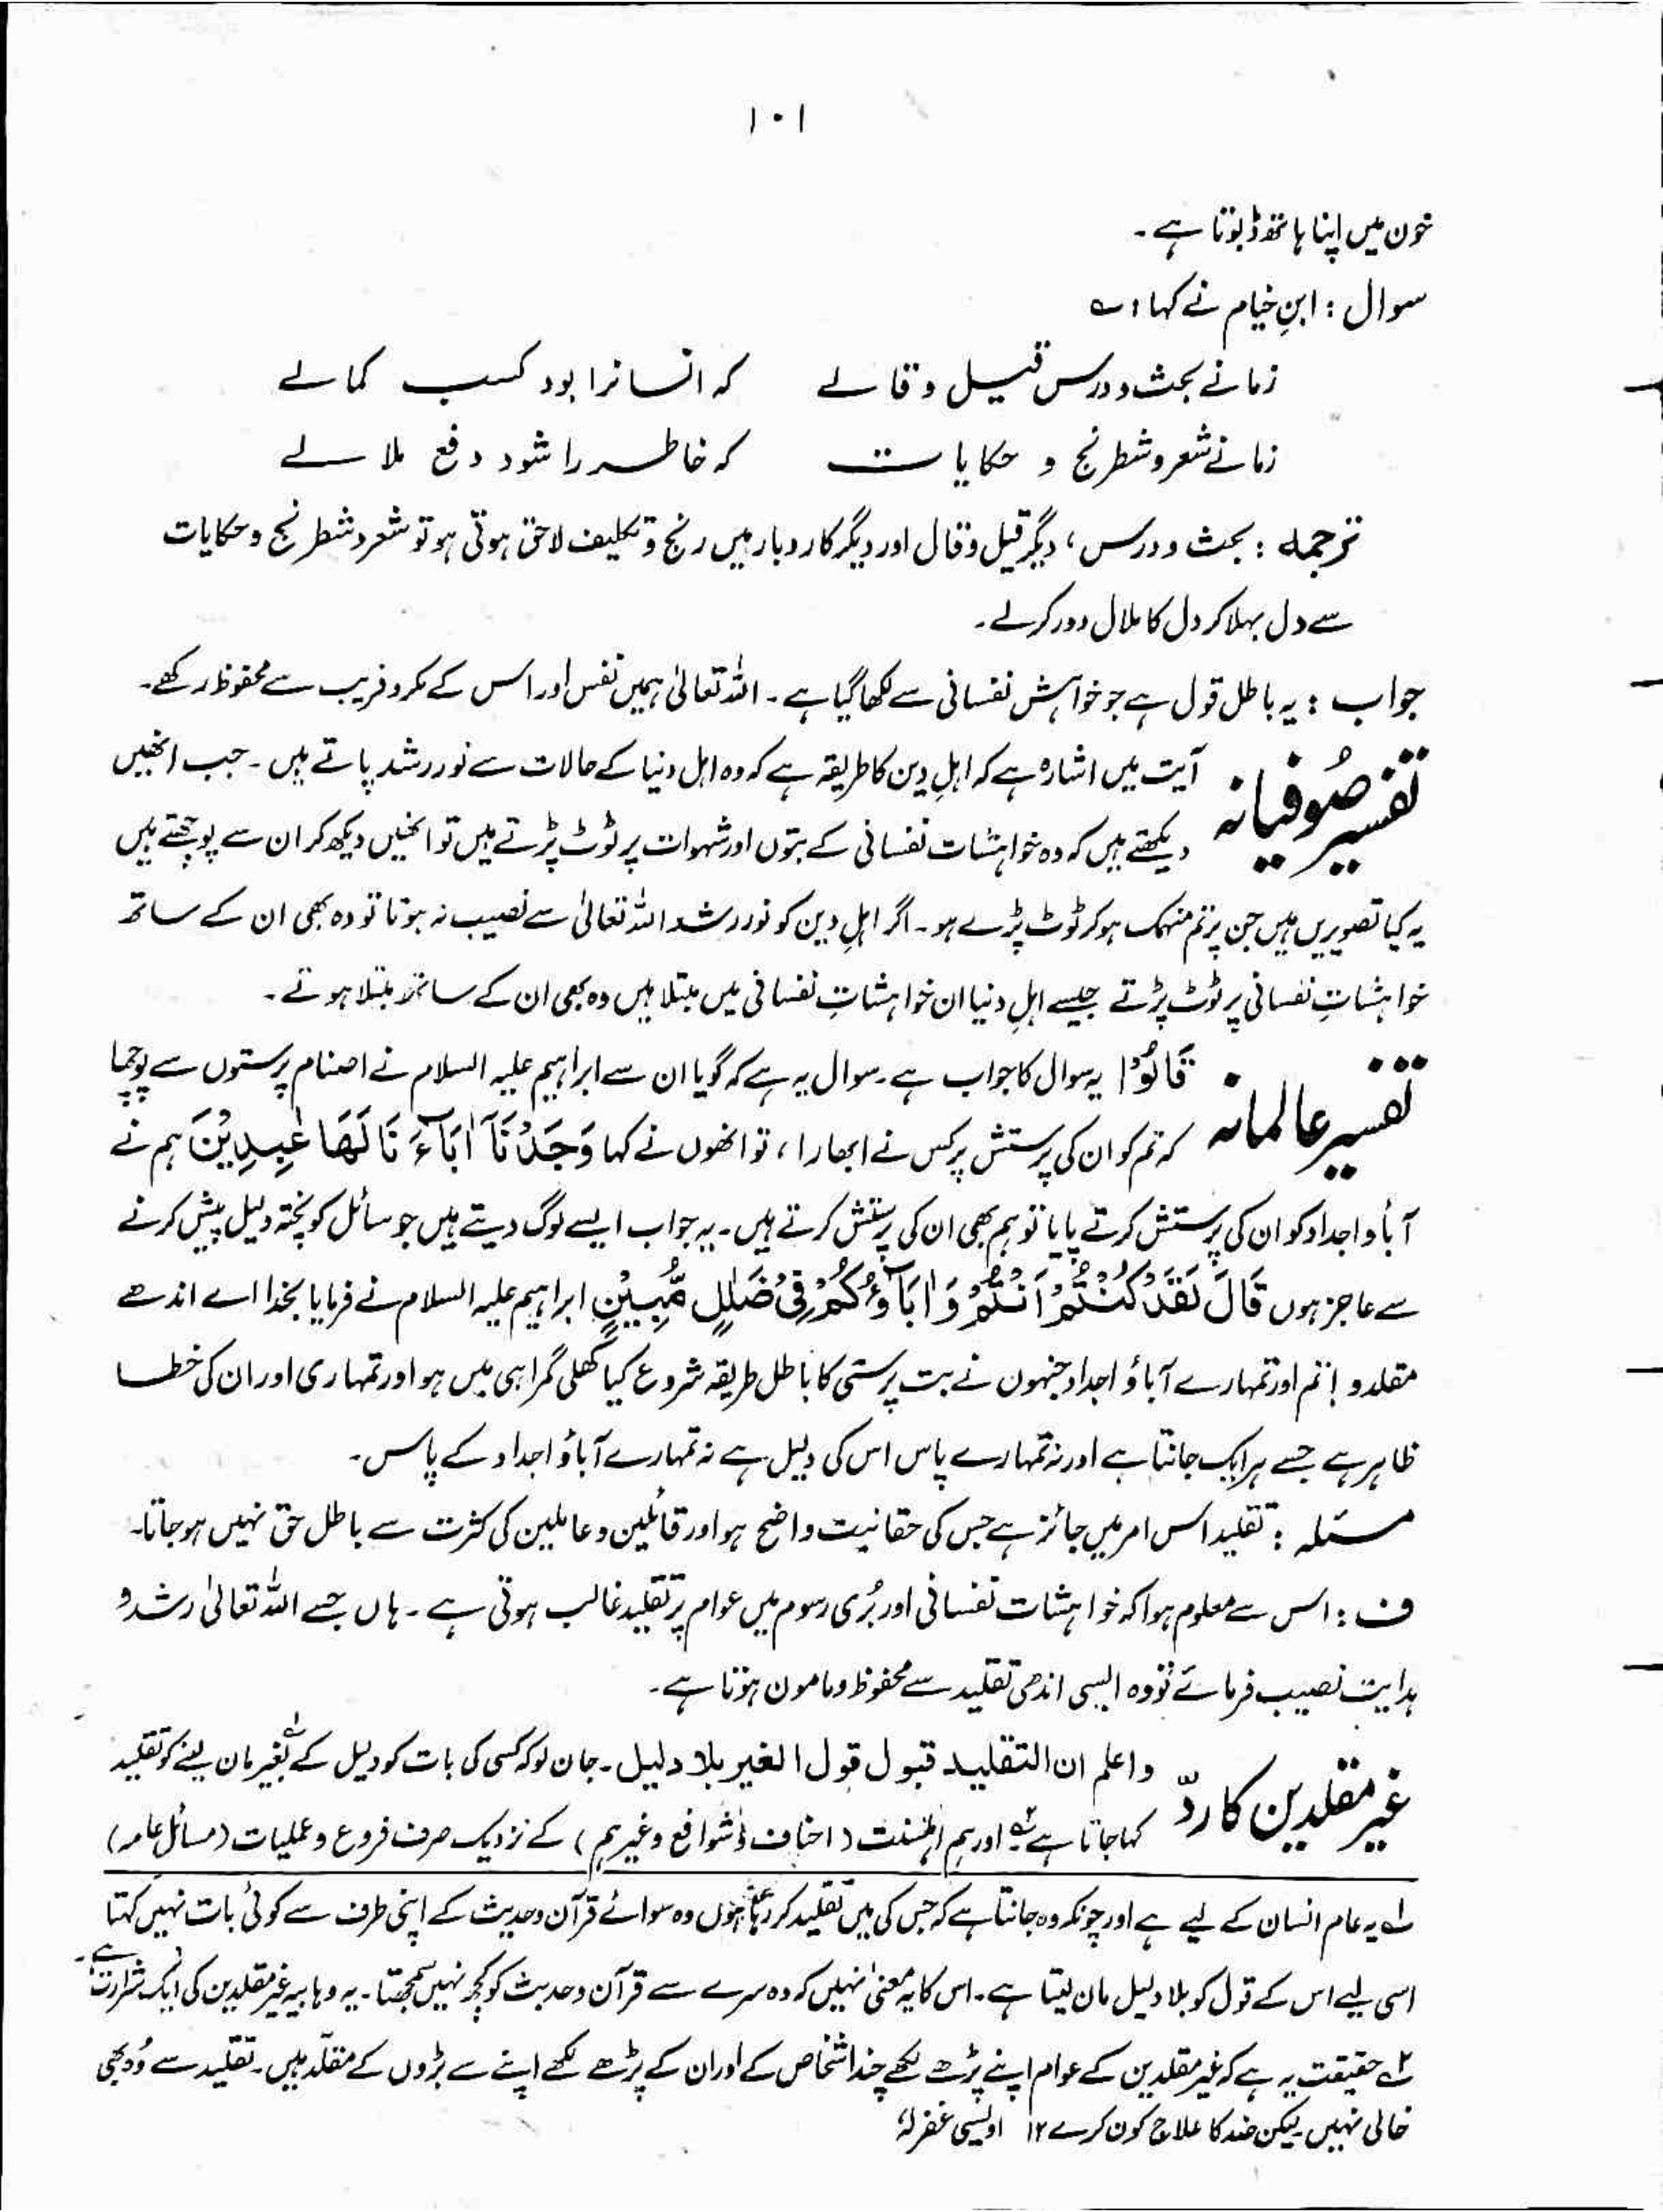 ۱۰۱
خون میں اپنا ہاتھ ڈبوتا ہے۔
سوال : ابنِ خیام نے کہا ؂
زمانے بحث و درس قیل و قالے کہ انسانرا بود کسب کمالے
زمانے شعر و شطرنج و حکایات کہ خاطر را شود دفع ملالے
ترجمہ : بحث و درس ، دیگر قیل و قال اور دیگر کاروبار میں رنج و تکلیف لاحق ہوتی ہو تو شعر و شطرنج و حکایات
سے دل بہلا کر دل کا ملال دور کرلے۔
جواب : یہ باطل قول ہے جو خواہش نفسانی سے لکھا گیا ہے۔ اللہ تعالیٰ ہمیں نفس اور اس کے مکر و فریب سے محفوظ رکھے۔
تفسیر صُوفیانہ آیت میں اشارہ ہے کہ اہلِ دین کا طریقہ ہے کہ وہ اہل دنیا کے حالات سے نورِ رشد پاتے ہیں۔ جب انھیں
دیکھتے ہیں کہ وہ خواہشات نفسانی کے بتوں اور شہوات پر ٹوٹ پڑتے ہیں تو انھیں دیکھ کر ان سے پوچھتے ہیں
یہ کیا تصویریں ہیں جن پر تم منہمک ہو کر ٹوٹ پڑے ہو۔ اگر اہلِ دین کو نورِ رشد اللہ تعالیٰ سے نصیب نہ ہوتا تو وہ بھی ان کے ساتھ
خواہشاتِ نفسانی پر ٹوٹ پڑتے جیسے اہلِ دنیا ان خواہشاتِ نفسانی میں مبتلا ہیں وہ بھی ان کے ساتھ مبتلا ہوتے۔
تفسیر عالمانہ قَالُوْا یہ سوال کا جواب ہے۔ سوال یہ ہے کہ گویا ان سے ابراہیم علیہ السلام نے اصنام پرستوں سے پوچھا
کہ تم کو ان کی پرستش پر کس نے ابھارا ، تو انھوں نے کہا وَجَدْنَآ اٰبَآءَ نَا لَهَا عٰبِدِیْنَ ہم نے
آباؑ و اجداد کو ان کی پرستش کرتے پایا تو ہم بھی ان کی پرستش کرتے ہیں۔ یہ جواب ایسے لوگ دیتے ہیں جو سائل کو پختہ دلیل پیش کرنے
سے عاجز ہوں قَالَ لَقَدْ كُنْتُمْ اَنْتُمْ وَ اٰبَآؤُكُمْ فِیْ ضَلٰلٍ مُّبِیْنٍ ابراہیم علیہ السلام نے فرمایا بخدا اے اندھے
مقلدو ! تم اور تمہارے آباؤ اجداد جنہوں نے بت پرستی کا باطل طریقہ شروع کیا کھلی گمراہی میں ہو اور تمہاری اور ان کی خطا
ظاہر ہے جسے ہر ایک جانتا ہے اور نہ تمہارے پاس اس کی دلیل ہے نہ تمہارے آباؤ اجداد کے پاس۔
مسئلہ : تقلید اس امر میں جائز ہے جس کی حقانیت واضح ہو اور قائلین و عاملین کی کثرت سے باطل حق نہیں ہو جاتا۔
ف : اس سے معلوم ہوا کہ خواہشات نفسانی اور بُری رسوم میں عوام پر تقلید غالب ہوتی ہے۔ ہاں جسے اللہ تعالیٰ رشد و
ہدایت نصیب فرمائے تو وہ ایسی اندھی تقلید سے محفوظ و مامون ہوتا ہے۔
غیر مقلدین کا ردّ واعلم ان التقلید قبول قول الغیر بلا دلیل۔ جان لو کہ کسی کی بات کو دلیل کے بغیر مان لینے کو تقلید
کہا جاتا ہے اور ہم اہلسنت (احناف و شوافع وغیرہم) کے نزدیک صرف فروع و عملیات (مسائل عامہ)
؂۱ یہ عام انسان کے لیے ہے اور چونکہ وہ جانتا ہے کہ جس کی میں تقلید کر رہا ہوں وہ سوائے قرآن و حدیث کے اپنی طرف سے کوئی بات نہیں کہتا
اسی لیے اس کے قول کو بلا دلیل مان لیتا ہے۔ اس کا یہ معنیٰ نہیں کہ وہ سرے سے قرآن و حدیث کو کچھ نہیں سمجھتا۔ یہ وہابیہ غیر مقلدین کی ایک شرارت ہے۔
؂۲ حقیقت یہ ہے کہ غیر مقلدین کے عوام اپنے پڑھے لکھے چند اشخاص کے اور ان کے پڑھے لکھے اپنے سے بڑوں کے مقلّد ہیں۔ تقلید سے وُہ بھی
خالی نہیں لیکن ضد کا علاج کون کرے ۱۲ اویسی غفرلہٗ